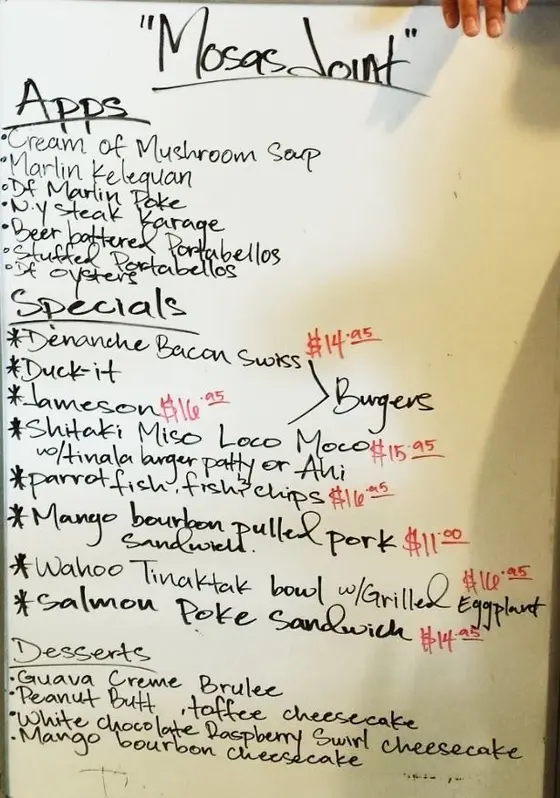 "Mosas Joint"
Apps
•Cream of Mushroom Soup
•Marlin Keleguan
•Df Marlin Poke
•N.y steak Karage
•Beer battered Portabellos
•Stuffed Portabellos
•Df oysters
Specials
*Denanche Bacon Swiss $14.95
*Duck-it
*Jameson $16.95
Burgers
*Shitaki Miso Loco Moco $15.95
w/tinala burger patty or Ahi
*parrotfish, fish & chips $16.95
*Mango bourbon pulled pork $11.00
Sandwich.
*Wahoo Tinaktak bowl w/Grilled Eggplant $16.95
*Salmon Poke Sandwich $14.95
Desserts
•Guava Creme Brulee
•Peanut Butt , toffee cheesecake
•White chocolate Raspberry Swirl cheesecake
•Mango bourbon cheesecake